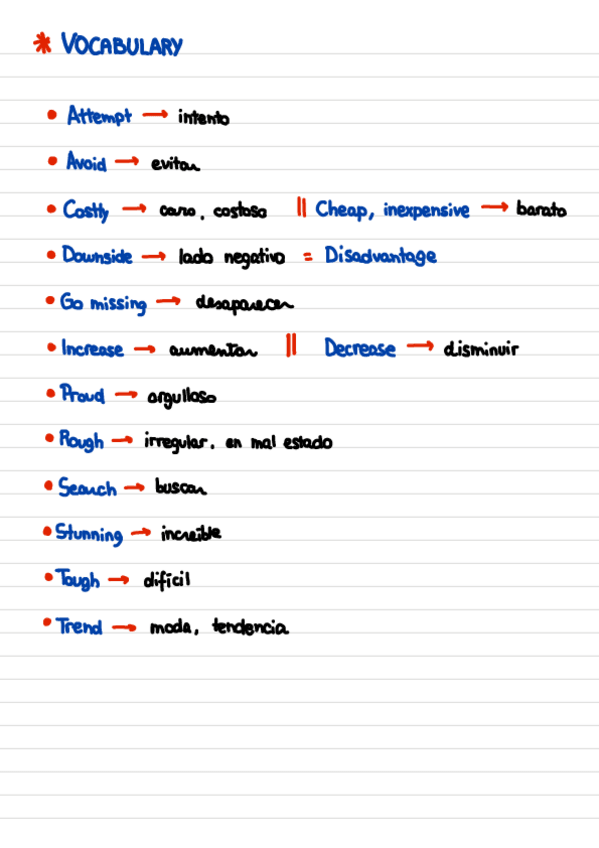 * VOCABULARY
• Attempt → intento
• Avoid → evitar
• Costly → caro, costoso || Cheap, inexpensive → barato
• Downside → lado negativo = Disadvantage
• Go missing → desaparecer
• Increase → aumentar || Decrease → disminuir
• Proud → orgulloso
• Rough → irregular, en mal estado
• Search → buscar
• Stunning → increíble
• Tough → difícil
• Trend → moda, tendencia